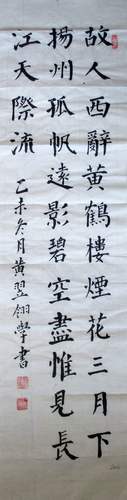 故人西辭黃鶴樓煙花三月下
揚州孤帆遠影碧空盡惟見長
江天際流
乙未冬月黃翌翎學書